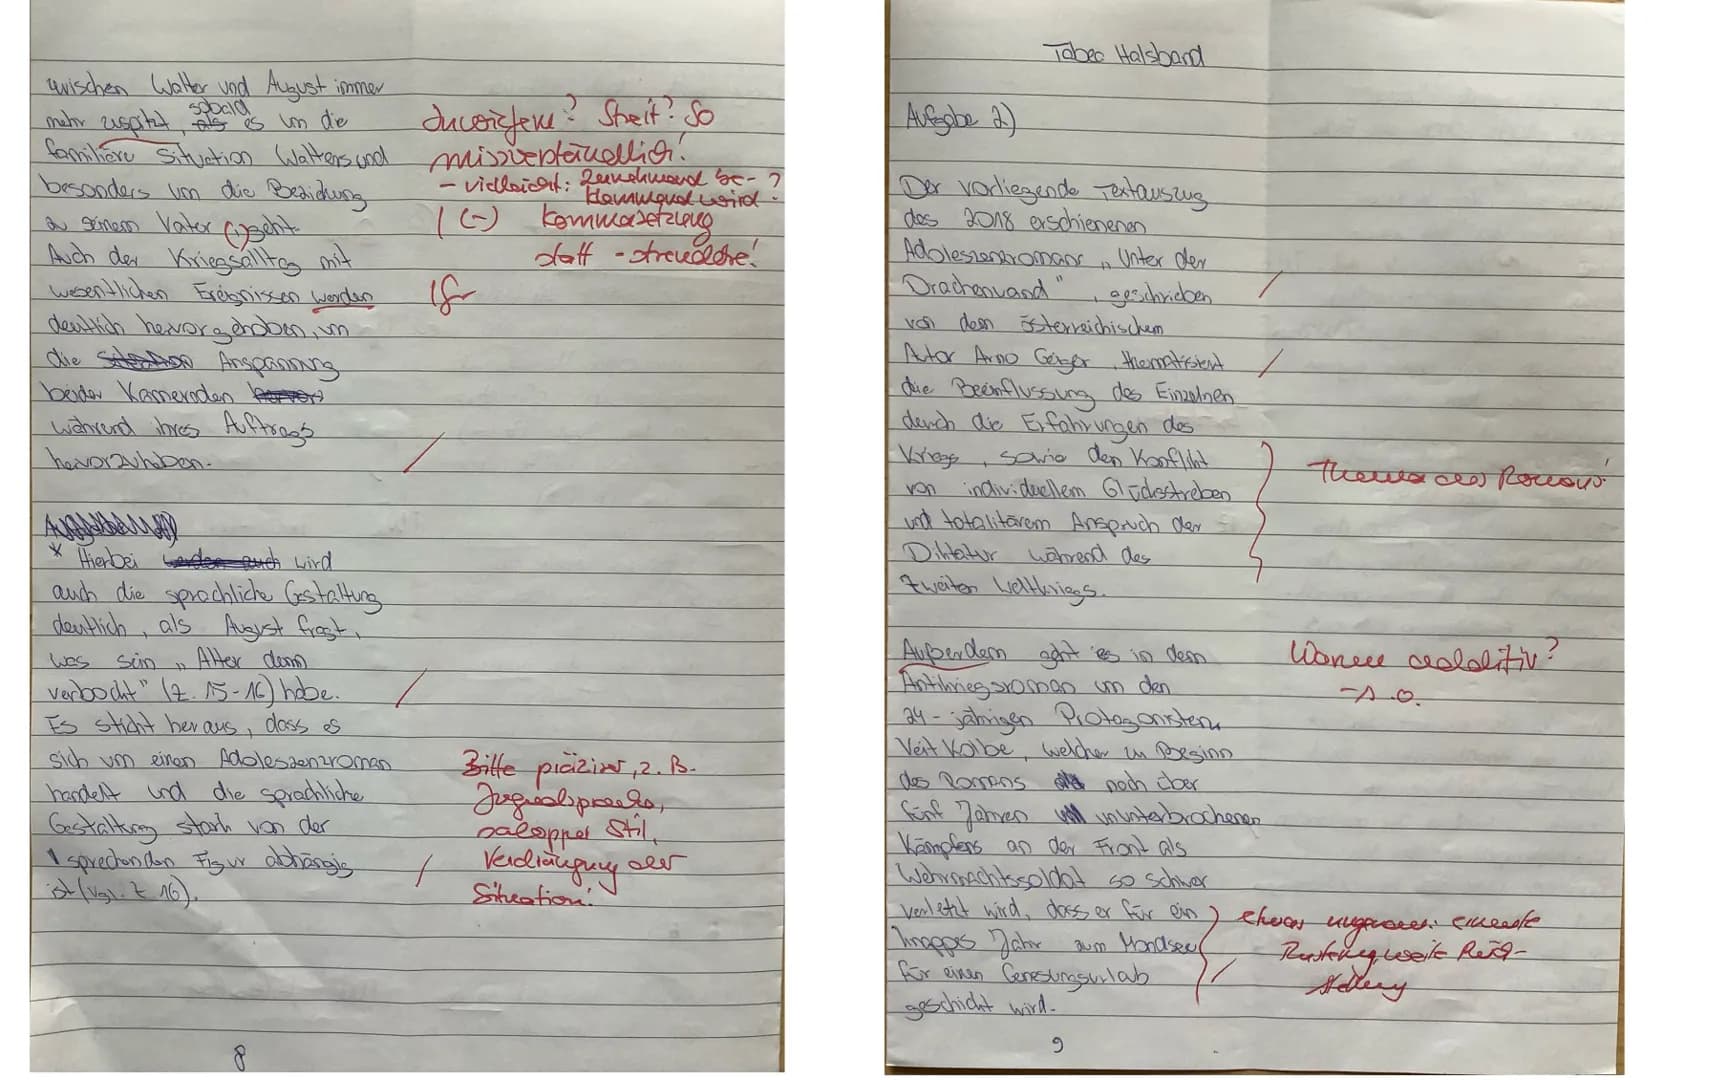 zwischen Walter und August immer
mehr zuspitzt, sobald es um die
familiäre Situation Walters und
besonders um die Beziehung
zu seinem Vater (,) geht.
Auch der Kriegsalltag mit
wesentlichen Ereignissen werden
deutlich hervorgehoben, um
die Anspannung
beider Kameraden
während ihres Auftrags
hervorzuheben.
* Hierbei wird
auch die sprachliche Gestaltung
deutlich, als August fragt,
was sein „Alter denn
verbockt" (Z. 15-16) habe.
Es sticht heraus, dass es
sich um einen Adoleszenzroman
handelt und die sprachliche
Gestaltung stark von der
sprechenden Figur abhängig
ist (vgl. Z 16).
8
Inwiefern? Streit? So
missverständlich!
- vielleicht: zunehmend be-?
klemmend wird
| (-) Kommasetzung
statt -streudose!
Bitte präziser, z. B.
Jugendsprache,
salopper Stil,
Verdrängung der
Situation!
Tabea Halsband
Aufgabe 2)
Der vorliegende Textauszug
des 2018 erschienenen
Adoleszenzromans „Unter der
Drachenwand", geschrieben
von dem österreichischem
Autor Arno Geiger, thematisiert
die Beeinflussung des Einzelnen
durch die Erfahrungen des
Kriegs, sowie den Konflikt
von individuellem Glücksstreben
und totalitärem Anspruch der
Diktatur während des
Zweiten Weltkriegs.
Thema des Romans!
Außerdem geht es in dem
Antikriegsroman um den
24-jährigen Protagonisten
Veit Kolbe, welcher zu Beginn
des Romans noch über
fünf Jahren ununterbrochenen
Kämpfens an der Front als
Wehrmachtssoldat so schwer
verletzt wird, dass er für ein
knappes Jahr zum Mondsee
für einen Genesungsurlab
geschickt wird.
Warum additiv?
→ s. o.
etwas ungenau: erneute
9